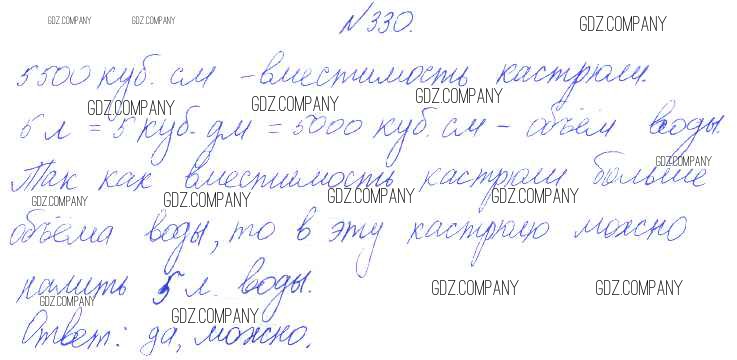 №330.
5500 куб. см - вместимость кастрюли.
5 л = 5 куб. дм = 5000 куб. см - объём воды.
Так как вместимость кастрюли больше
объёма воды, то в эту кастрюлю можно
налить 5 л воды.
Ответ: да, можно.
GDZ.COMPANY GDZ.COMPANY GDZ.COMPANY
GDZ.COMPANY GDZ.COMPANY GDZ.COMPANY
GDZ.COMPANY
GDZ.COMPANY GDZ.COMPANY GDZ.COMPANY GDZ.COMPANY
GDZ.COMPANY GDZ.COMPANY GDZ.COMPANY
GDZ.COMPANY